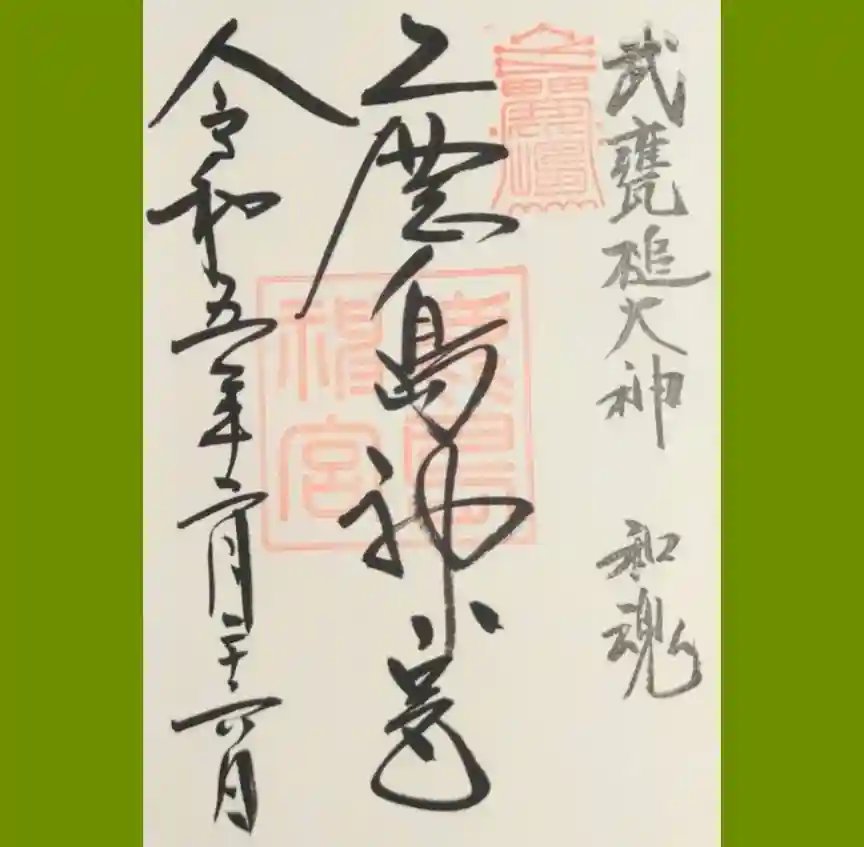 武甕槌大神 和魂
鹿島神宮
令和五年二月二十六日
鹿島神宮